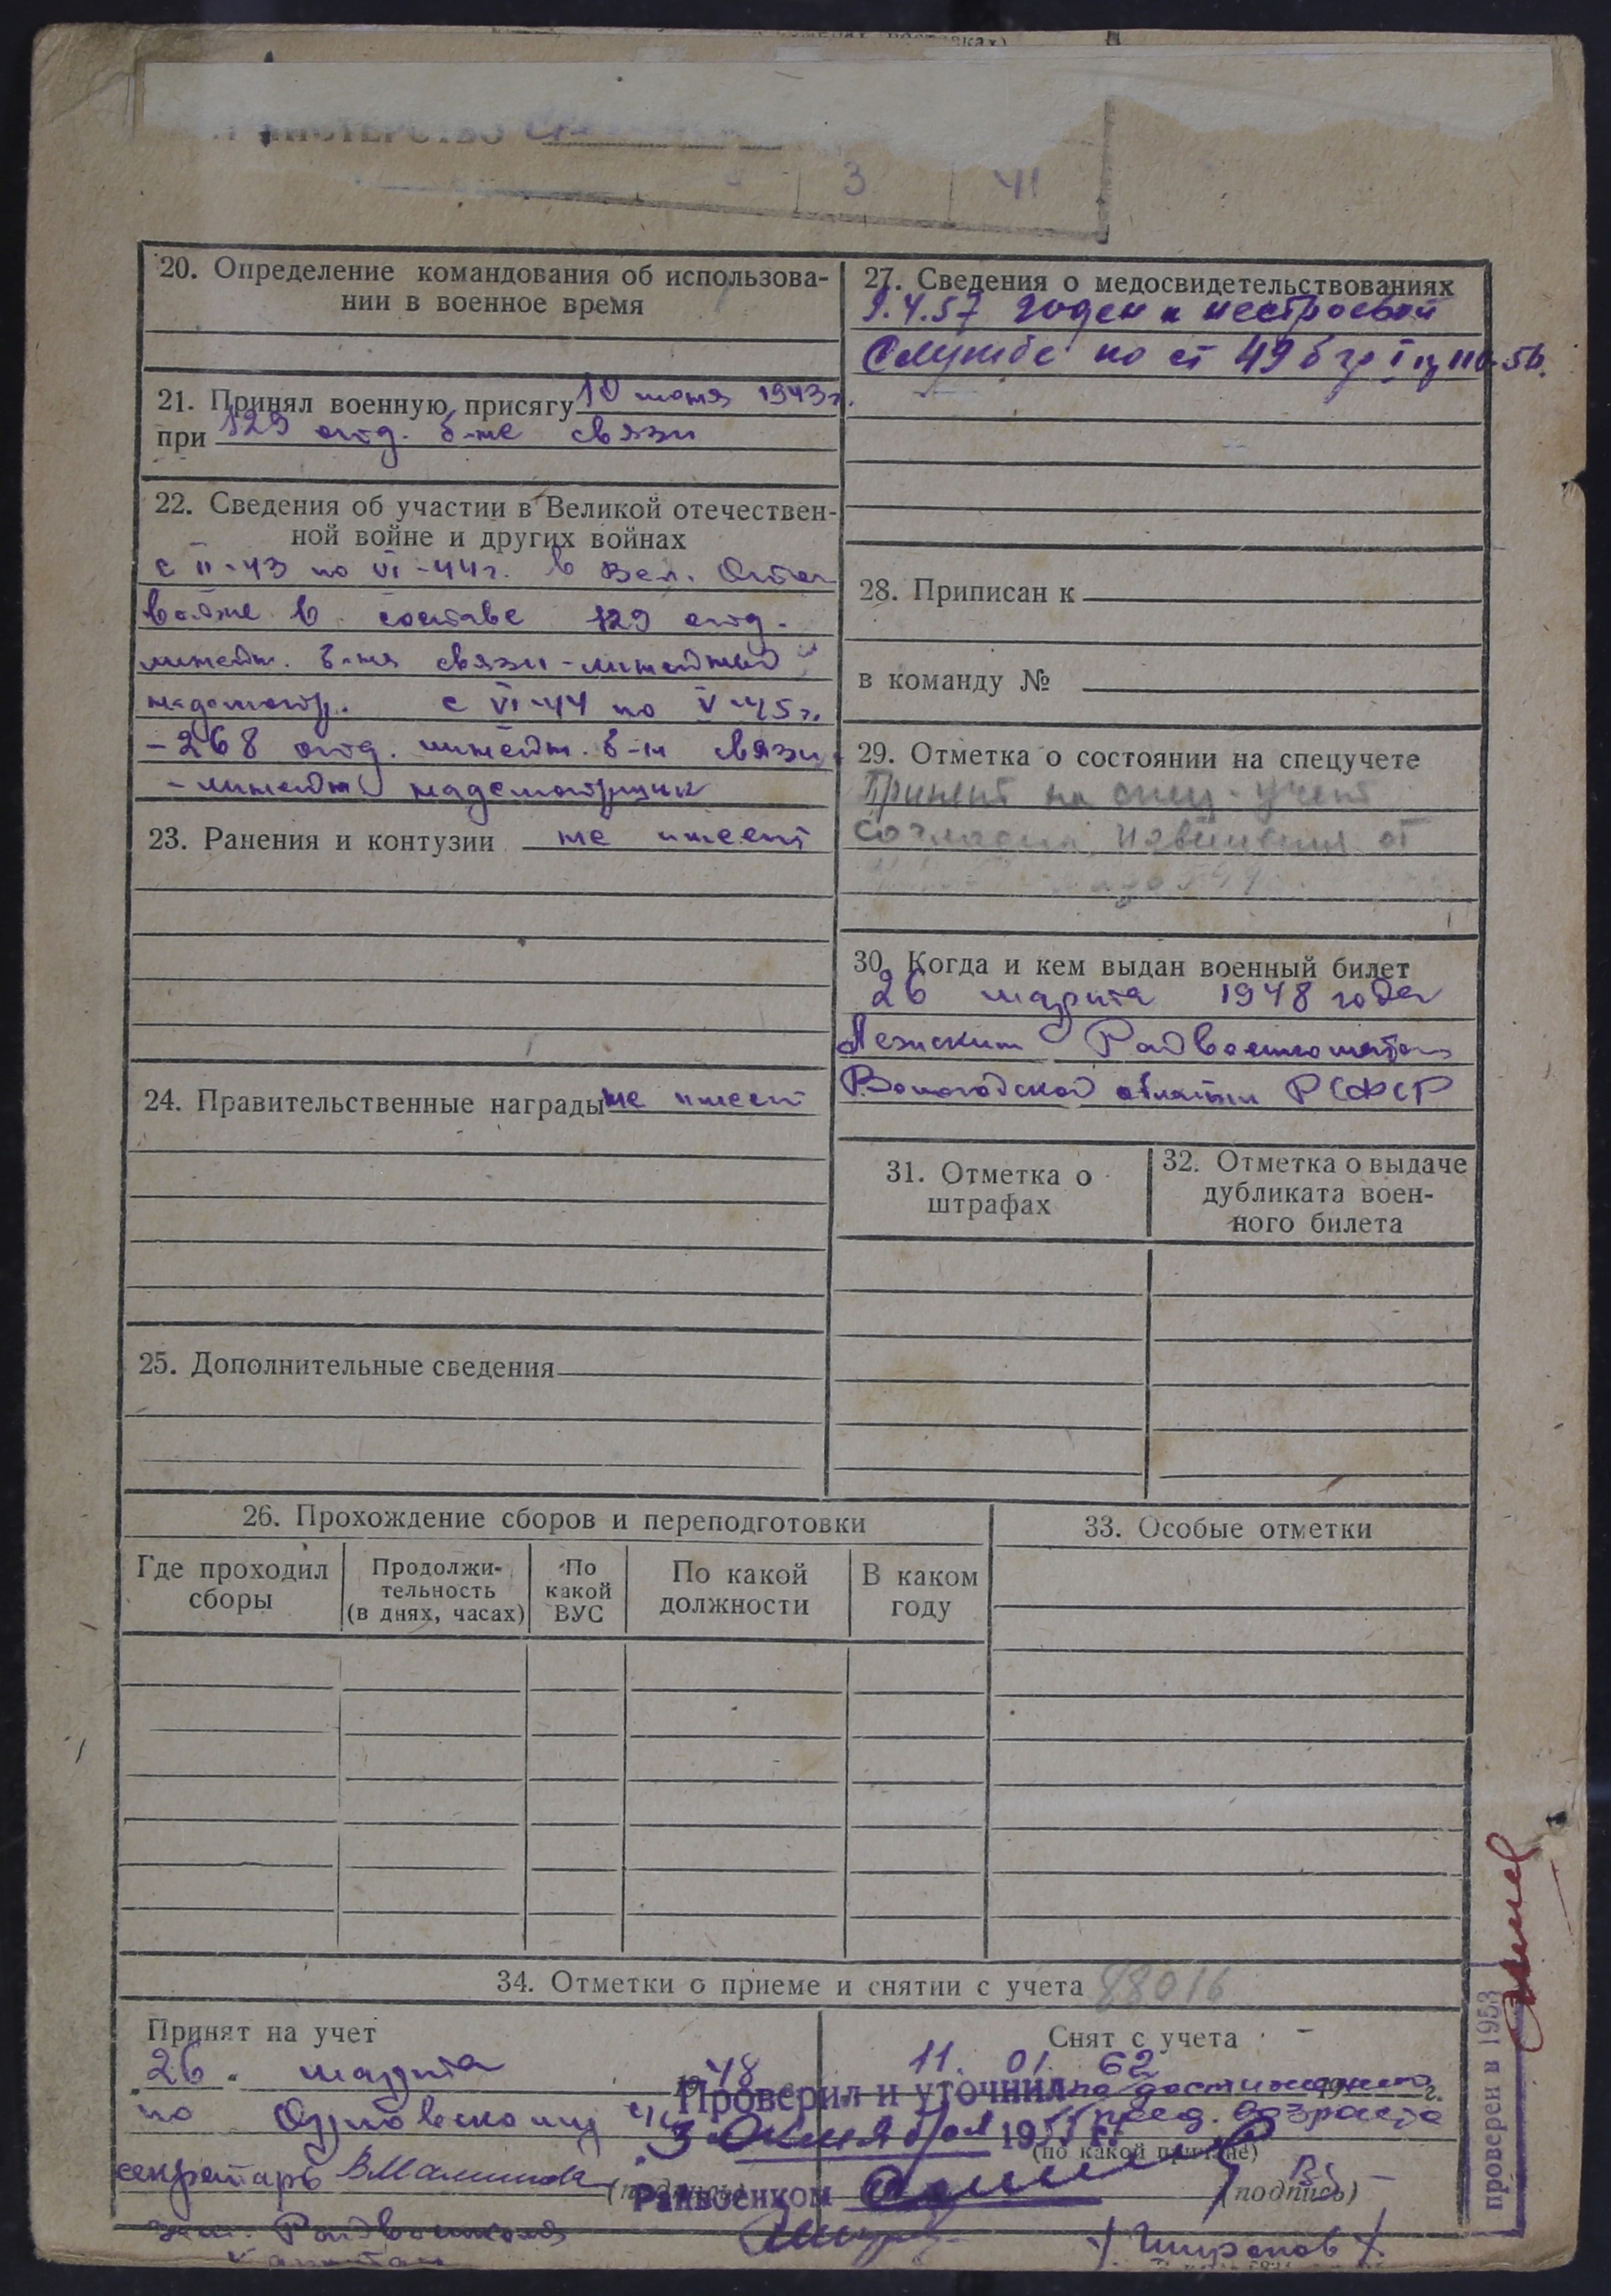 3 41
20. Определение командования об использова-
нии в военное время
21. Принял военную присягу 10 июня 1943г.
при 129 отд. б-не связи
22. Сведения об участии в Великой отечествен-
ной войне и других войнах
с II-43 по VI-44г. в Вел. Отеч
войне в составе 129 отд.
линейн. б-на связи - линейный
надсмотр. с VI-44 по V-45г.
- 268 отд. линейн. б-н связи
- линейн надсмотрщик
23. Ранения и контузии не имеет
24. Правительственные награды не имеет
25. Дополнительные сведения
26. Прохождение сборов и переподготовки
Где проходил
сборы
Продолжи-
тельность
(в днях, часах)
По
какой
ВУС
По какой
должности
В каком
году
27. Сведения о медосвидетельствованиях
9.4.57 годен к нестроевой
службе по ст 49 б гр I пр 110-56.
28. Приписан к
в команду №
29. Отметка о состоянии на спецучете
Принят на спец. учет
согласно извещения от
30. Когда и кем выдан военный билет
26 марта 1948 года
Лежским Райвоенкоматом
Вологодской области РСФСР
31. Отметка о
штрафах
32. Отметка о выдаче
дубликата воен-
ного билета
33. Особые отметки
34. Отметки о приеме и снятии с учета 88016
Принят на учет
26 марта 1948
по
секретарь
(подпись)
зам. Райвоенкома
капитан
Снят с учета
11. 01. 62 г.
по достижению
пред. возраста
(по какой причине)
(подпись)
Проверил и уточнил
3 октября 1955 г.
Райвоенком
проверен в 1953